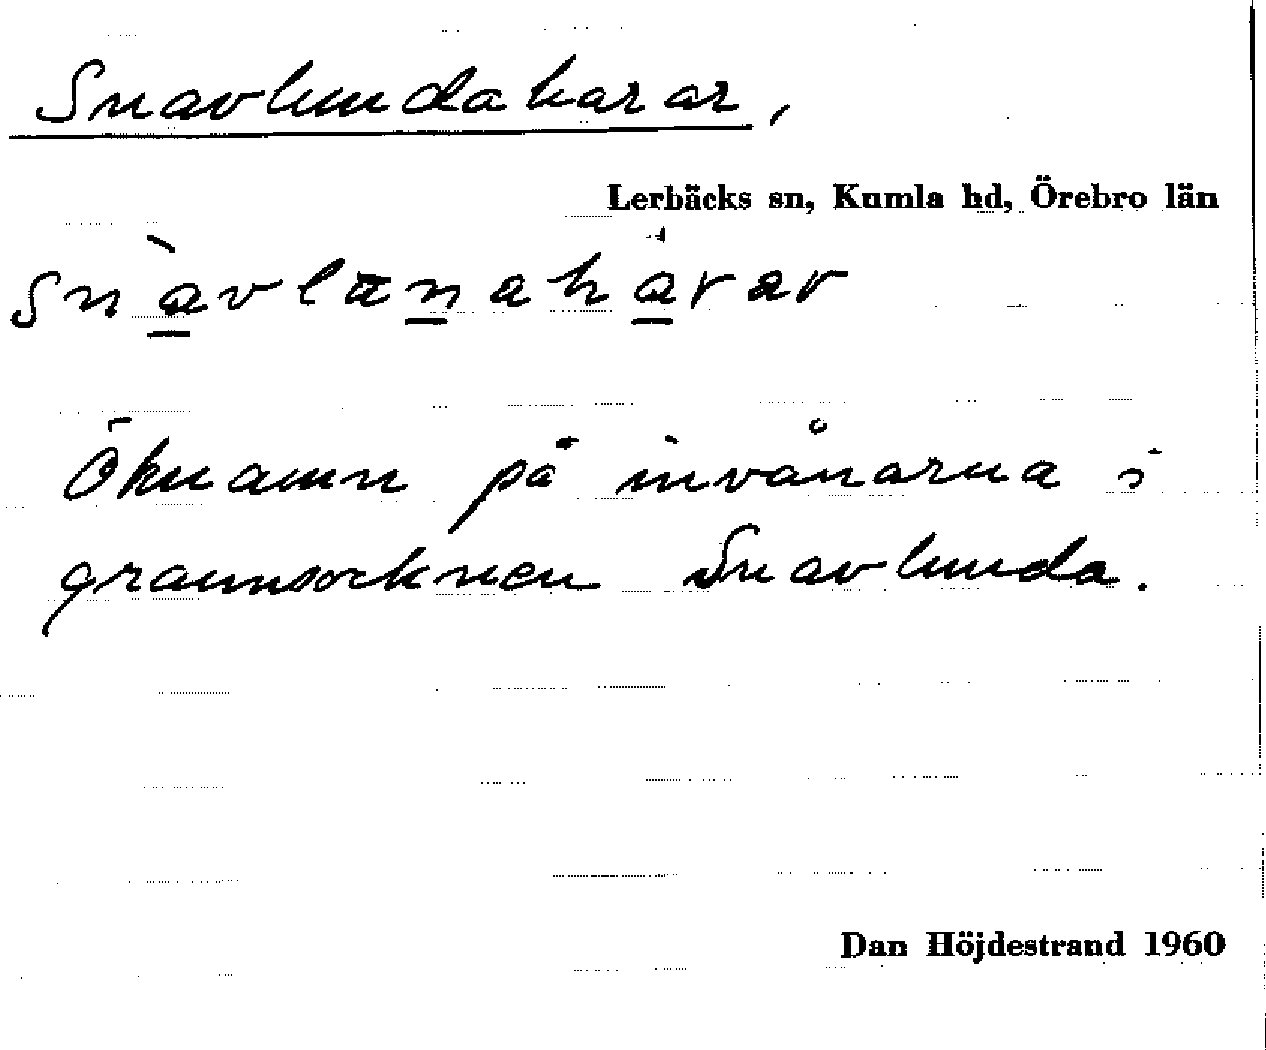 Snavlundaharar,
Lerbäcks sn, Kumla hd, Örebro län
snàvlanahárar
Öknamn på invånarna i
grannsocknen Snavlunda.
Dan Höjdestrand 1960